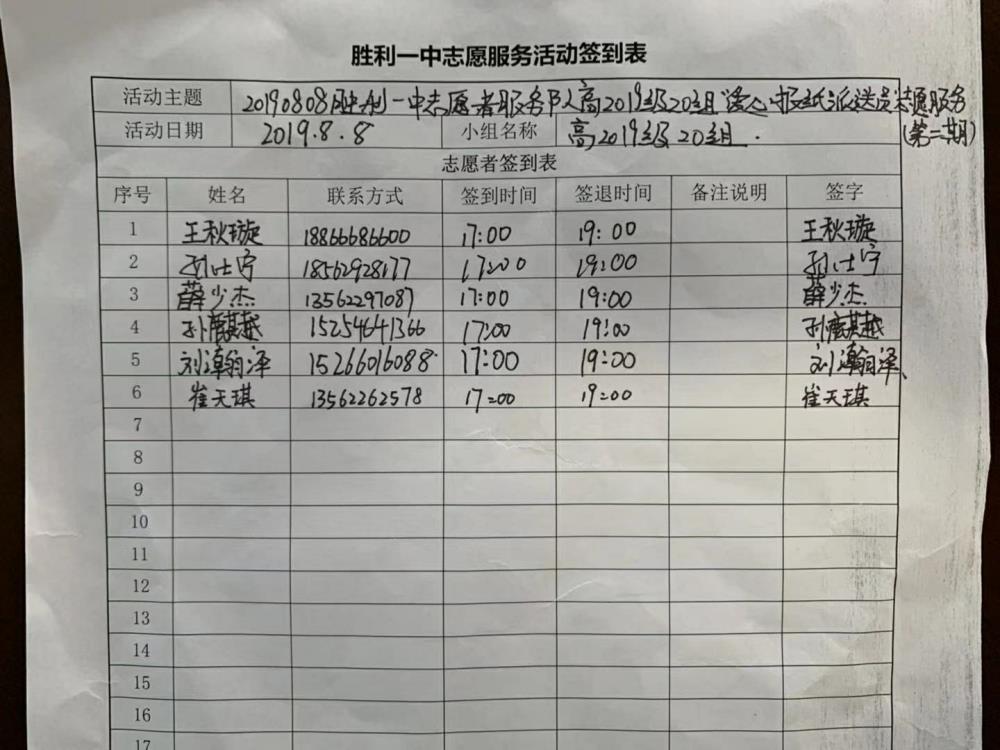 胜利一中志愿服务活动签到表
活动主题 20190808胜利一中志愿者服务队高2019级20组"暖心"报纸派送员志愿服务
活动日期 2019.8.8 小组名称 高2019级20组. (第二期)
志愿者签到表
序号 姓名 联系方式 签到时间 签退时间 备注说明 签字
1 王秋璇 18866686600 17:00 19:00 王秋璇
2 孙仕宇 18562928177 17:00 19:00 孙仕宇
3 薛少杰 13562297087 17:00 19:00 薛少杰
4 孙麒越 15254641366 17:00 19:00 孙麒越
5 刘瀚泽 15266016088 17:00 19:00 刘瀚泽
6 崔天琪 13562262578 17:00 19:00 崔天琪
7
8
9
10
11
12
13
14
15
16
17